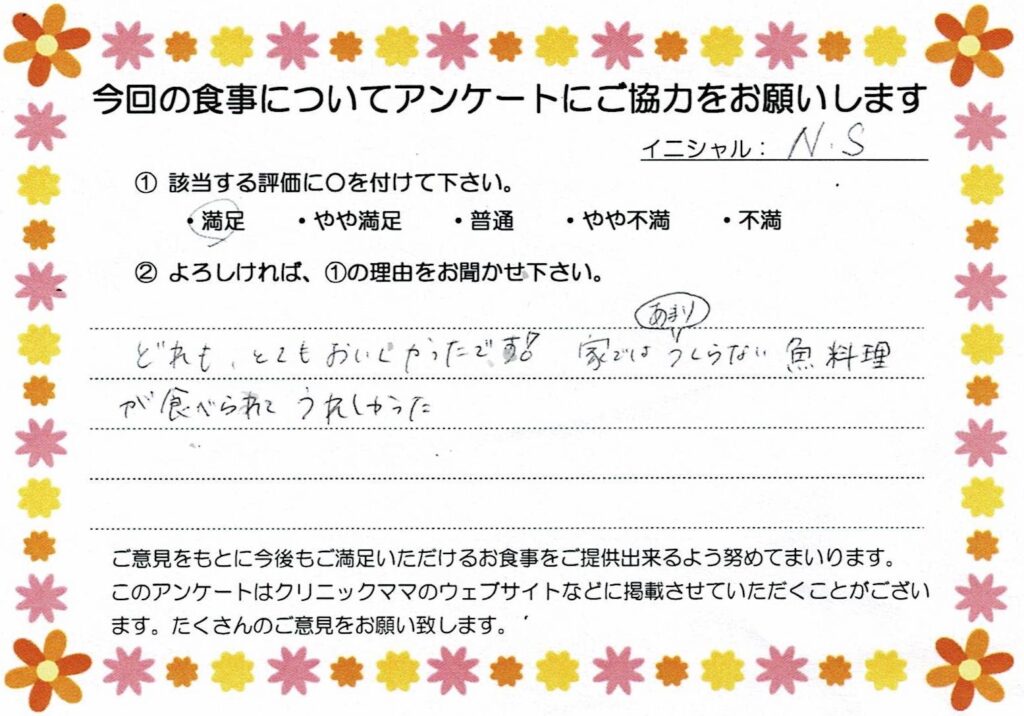 今回の食事についてアンケートにご協力をお願いします
イニシャル： N.S
① 該当する評価に〇を付けて下さい。
・満足 ・やや満足 ・普通 ・やや不満 ・不満
② よろしければ、①の理由をお聞かせ下さい。
あまり
どれも、とてもおいしかったです。 家ではつくらない 魚料理
が食べられて うれしかった
ご意見をもとに今後もご満足いただけるお食事をご提供出来るよう努めてまいります。
このアンケートはクリニックママのウェブサイトなどに掲載させていただくことがござい
ます。たくさんのご意見をお願い致します。